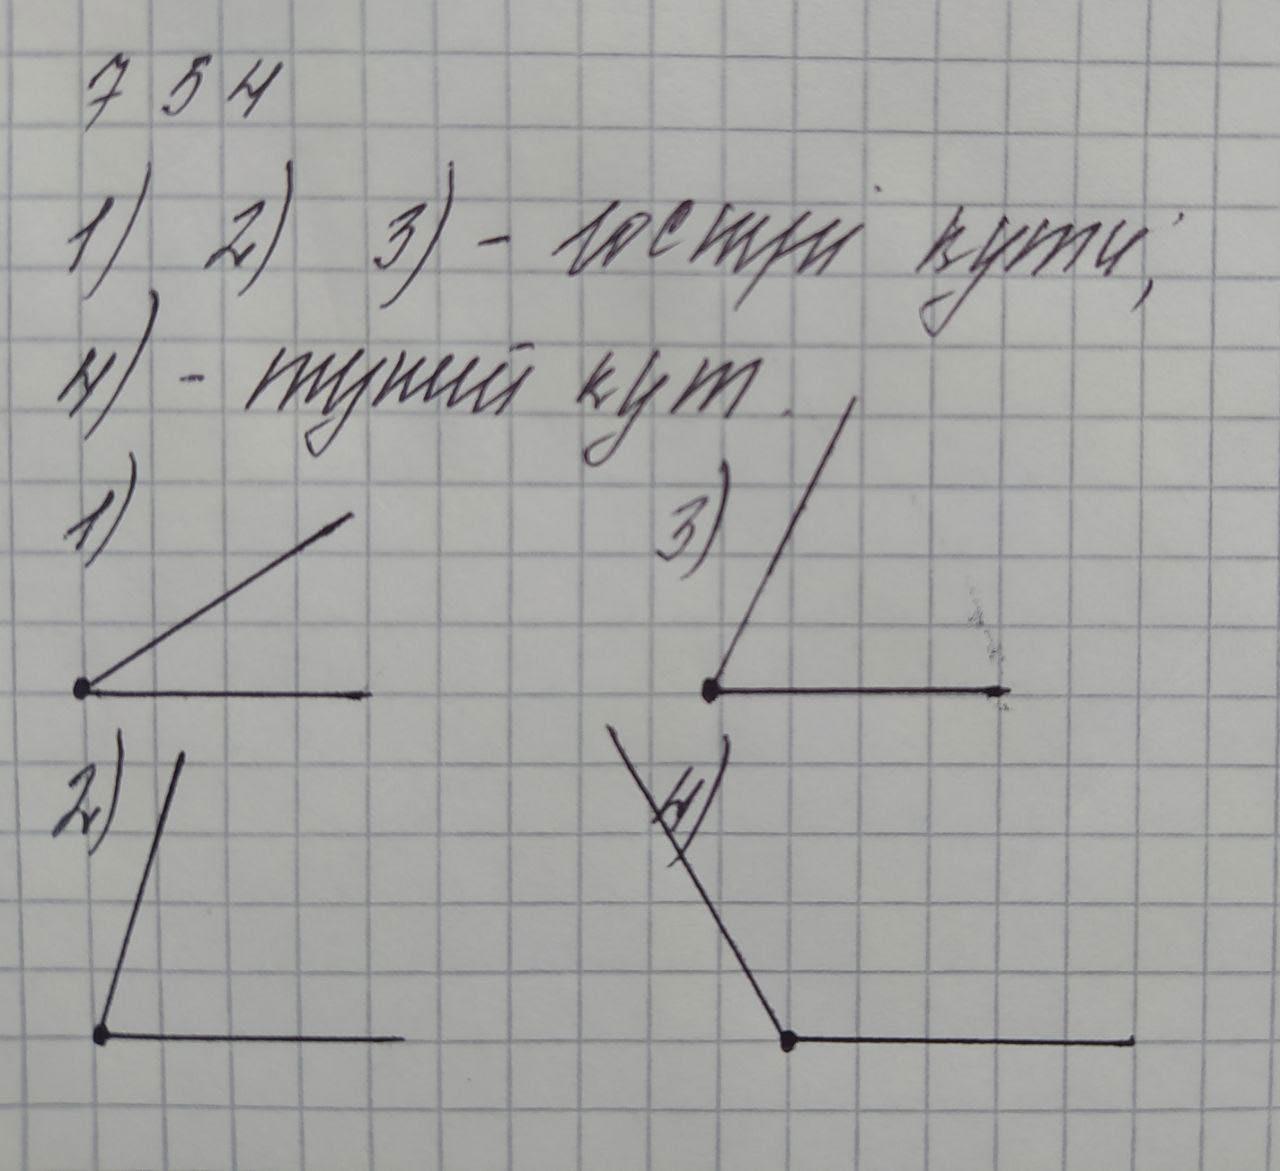 754
1) 2) 3) - гострі кути;
4) - тупий кут.
1)
3)
2)
4)